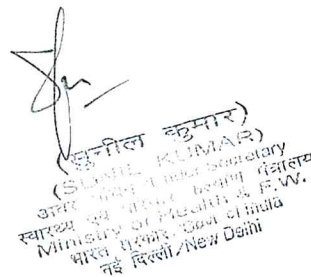 (सुनील कुमार)
(SUNIL KUMAR)
अवर सचिव / Under Secretary
स्वास्थ्य एवं परिवार कल्याण मंत्रालय
Ministry of Health & F.W.
भारत सरकार/Govt of India
नई दिल्ली/New Delhi